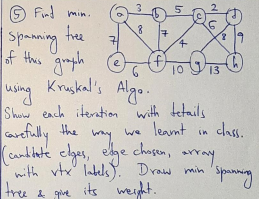 ⑤ Find min.
spanning tree
of this graph
a 3 b 5 c 2 d
7 8 7 4 6 8 9
e 6 f 10 g 13 h
using Kruskal's Algo.
Show each iteration with details
carefully the way we learnt in class.
(candidate edges, edge chosen, array
with vtx labels). Draw min spanning
tree & give its weight.